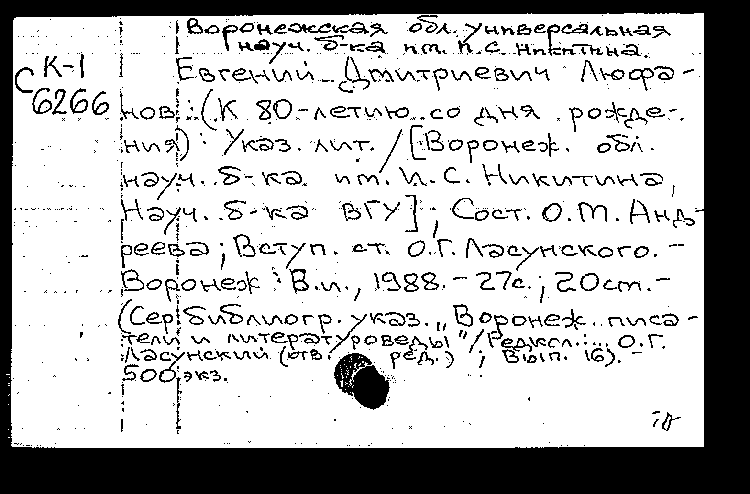 Воронежская обл. универсальная
науч. б-ка им. И.С. Никитина.
К-1
С
6266
Евгений Дмитриевич Люфа-
нов : (К 80-летию со дня рожде-
ния) : Указ. лит. / [Воронеж. обл.
науч. б-ка им. И.С. Никитина,
Науч. б-ка ВГУ] ; Сост. О.М. Анд-
реева ; Вступ. ст. О.Г. Ласунского. -
Воронеж : Б.и., 1988. - 27с. ; 20см. -
(Сер. библиогр. указ. „Воронеж. писа-
тели и литературоведы" / Редкол.: ... О.Г.
Ласунский (отв. ред.) ; Вып. 16). -
500 экз.